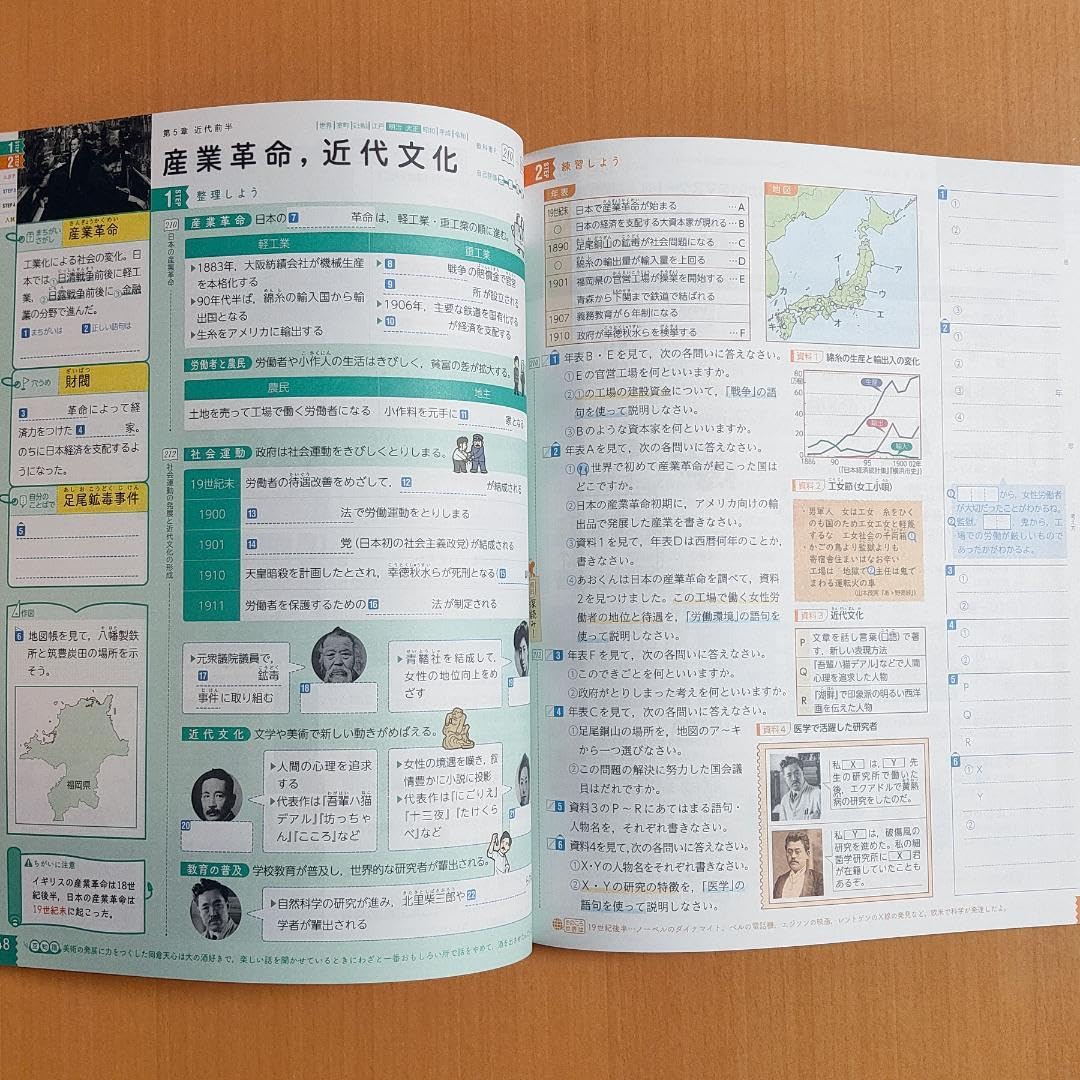 第5章 近代前半
世界 室町 江戸 明治 大正 昭和 平成 令和
教科書P. 210
産業革命，近代文化
自己評価
STEP 1 整理しよう
まちがいさがし 産業革命
さんぎょうかくめい
工業化による社会の変化。日
本では①日清戦争前後に軽工
業，②日露戦争前後に③金融
業の分野で進んだ。
1 まちがいは 2 正しい語句は
穴うめ 財閥
ざいばつ
3 革命によって経
済力をつけた 4 家。
のちに日本経済を支配するよ
うになった。
自分のことばで 足尾鉱毒事件
あしおこうどくじけん
5
作図
6 地図帳を見て，八幡製鉄
所と筑豊炭田の場所を示
そう。
福岡県
ちがいに注意
イギリスの産業革命は18世
紀後半，日本の産業革命は
19世紀末に起こった。
210 日本の産業革命
産業革命 日本の 7 革命は，軽工業・重工業の順に進む。
軽工業 重工業
▶1883年，大阪紡績会社が機械生産
を本格化する
▶90年代半ば，綿糸の輸入国から輸
出国となる
▶生糸をアメリカに輸出する
▶ 8 戦争の賠償金で官営
9 所が設立される
▶1906年，主要な鉄道を国有化する
▶ 10 が経済を支配する
労働者と農民 労働者や小作人の生活はきびしく，貧富の差が拡大する。
農民 地主
土地を売って工場で働く労働者になる 小作料を元手に 11 家となる
212 社会運動の発展と近代文化の形成
社会運動 政府は社会運動をきびしくとりしまる。
19世紀末 労働者の待遇改善をめざして， 12 が結成される
1900 13 法で労働運動をとりしまる
1901 14 党（日本初の社会主義政党）が結成される
1910 天皇暗殺を計画したとされ，幸徳秋水らが死刑となる 15
1911 労働者を保護するための 16 法が制定される
▶元衆議院議員で，
17 鉱毒
事件に取り組む
18
▶青鞜社を結成して，
女性の地位向上をめ
ざす
近代文化 文学や美術で新しい動きがめばえる。
▶人間の心理を追求
する
▶代表作は『吾輩ハ猫
デアル』『坊っちゃ
ん』『こころ』など
20
▶女性の境遇を嘆き，叙
情豊かに小説に投影
▶代表作は『にごりえ』
『十三夜』『たけくら
べ』など
21
教育の普及 学校教育が普及し，世界的な研究者が輩出される。
▶自然科学の研究が進み，北里柴三郎や 22
学者が輩出される
美術の発展に力をつくした岡倉天心は大の酒好きで，楽しい話を聞かせているときにわざと一番おもしろい所で話をやめて，酒を
STEP 2 練習しよう
年表
19世紀末 日本で産業革命が始まる …A
○ 日本の経済を支配する大資本家が現れる …B
1890 足尾銅山の鉱毒が社会問題になる …C
○ 綿糸の輸出量が輸入量を上回る …D
1901 福岡県の官営工場が操業を開始する …E
青森から下関まで鉄道で結ばれる
1907 義務教育が6年制になる
1910 政府が幸徳秋水らを検挙する …F
地図
ア
イ
ウ
エ
オ
カ
キ
1 年表B・Eを見て，次の各問いに答えなさい。
①Eの官営工場を何といいますか。
②①の工場の建設資金について，「戦争」の語
句を使って説明しなさい。
③Bのような資本家を何といいますか。
2 年表Aを見て，次の各問いに答えなさい。
①世界で初めて産業革命が起こった国は
どこですか。
②日本の産業革命初期に，アメリカ向けの輸
出品で発展した産業を書きなさい。
③資料1を見て，年表Dは西暦何年のことか，
書きなさい。
④あおくんは日本の産業革命を調べて，資料
2を見つけました。この工場で働く女性労
働者の地位と待遇を，「労働環境」の語句を
使って説明しなさい。
3 年表Fを見て，次の各問いに答えなさい。
①このできごとを何といいますか。
②政府がとりしまった考えを何といいますか。
4 年表Cを見て，次の各問いに答えなさい。
①足尾銅山の場所を，地図のア～キ
から一つ選びなさい。
②この問題の解決に努力した国会議
員はだれですか。
5 資料3のP～Rにあてはまる語句・
人物名を，それぞれ書きなさい。
6 資料4を見て，次の各問いに答えなさい。
①X・Yの人物名をそれぞれ書きなさい。
②X・Yの研究の特徴を，「医学」の
語句を使って説明しなさい。
資料1 綿糸の生産と輸出入の変化
80
60
40
20
0
生産
輸出
輸入
1886 90 95 1900 02年
（『日本経済統計集』『横浜市史』）
資料2 工女節（女工小唄）
・男軍人 女は工女 糸をひく
のも国のため 工女工女と軽蔑
するな 工女会社の千両箱
・かごの鳥より監獄よりも
寄宿舎住まいはなお辛い
工場は 地獄で 主任は鬼で
まわる運転火の車
（山本茂実「あゝ野麦峠」）
資料3 近代文化
P 文章を話し言葉（口語）で著
す，新しい表現方法
Q 『吾輩ハ猫デアル』などで人間
心理を追求した人物
R 『湖畔』で印象派の明るい西洋
画を伝えた人物
資料4 医学で活躍した研究者
私 X は， Y 先
生の研究所で働いた
後，エクアドルで黄熱
病の研究をしたのだ。
私 Y は，破傷風の
研究を進めた。私の細
菌学研究所に X 君
が在籍していたことも
あるぞ。
19世紀後半…ノーベルのダイナマイト，ベルの電話機，エジソンの映画，レントゲンのX線の発見など，欧米で科学が発達したよ。
1 ①
②
③
2 ①
②
③ 年
④
から，女性労働者
が大切だったことがわかるね。
監獄， 鬼から，工
場での労働が厳しいもので
あったかがわかるよ。
3 ①
②
4 ①
②
5 P
Q
R
6 ①X
Y
②